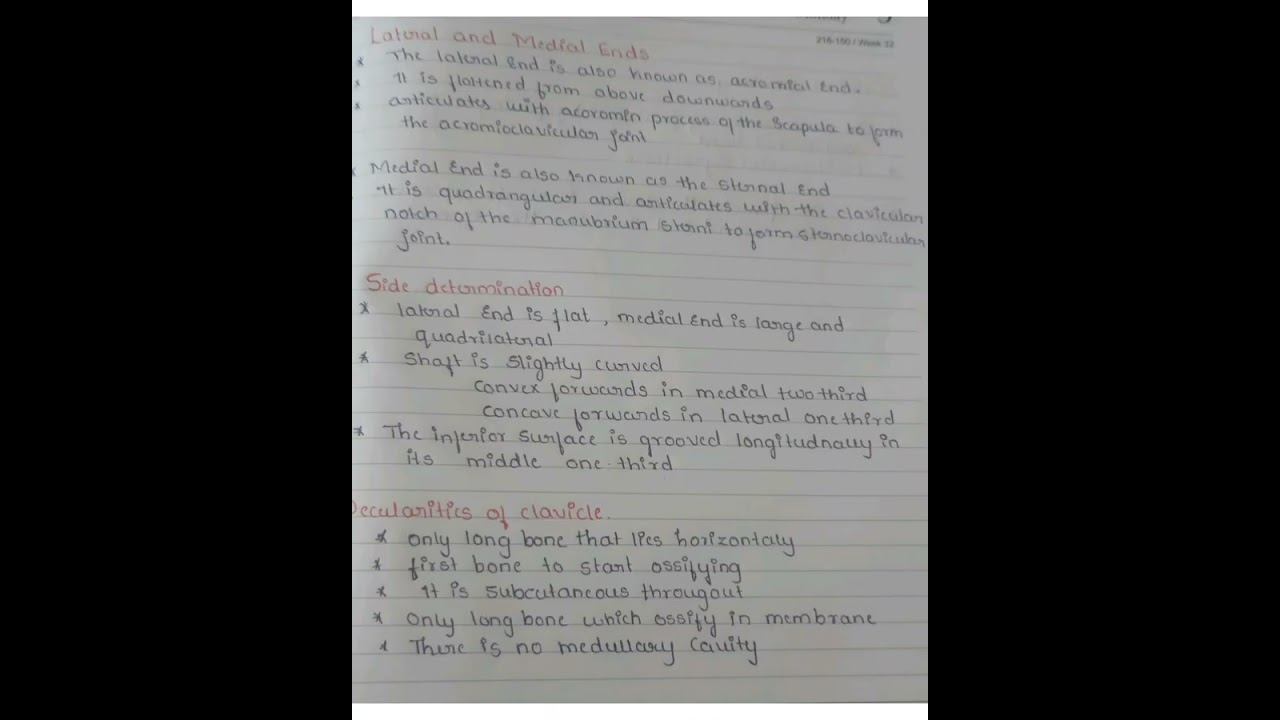 216-150 / Week 32
Lateral and Medial Ends
* The lateral End is also known as acromial End.
* It is flattened from above downwards
* articulates with acoromin process of the Scapula to form
the acromioclavicular joint
* Medial End is also known as the sternal End
It is quadrangular and articulates with the clavicular
notch of the manubrium sterni to form sternoclavicular
joint.
Side determination
* lateral End is flat, medial End is large and
quadrilateral
* Shaft is slightly curved
convex forwards in medial two third
concave forwards in lateral one third
* The inferior surface is grooved longitudnally in
its middle one-third
Pecularities of clavicle.
* only long bone that lies horizontaly
* first bone to start ossifying
* It is subcutaneous througout
* Only long bone which ossify in membrane
* There is no medullary cavity